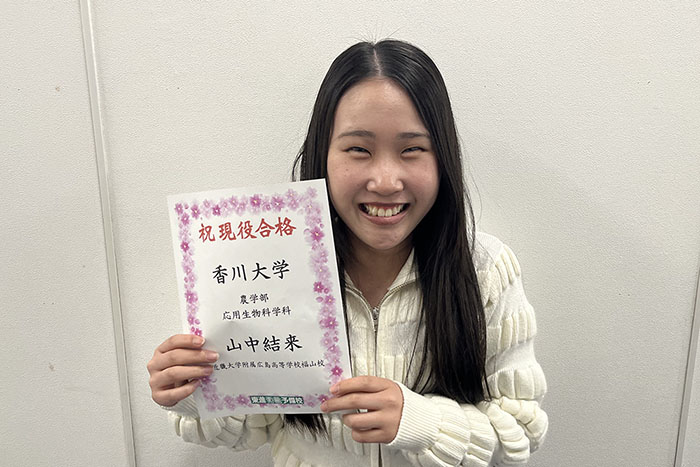 祝現役合格
香川大学
農学部
応用生物科学科
山中結来
近畿大学附属広島高等学校福山校
東進衛星予備校